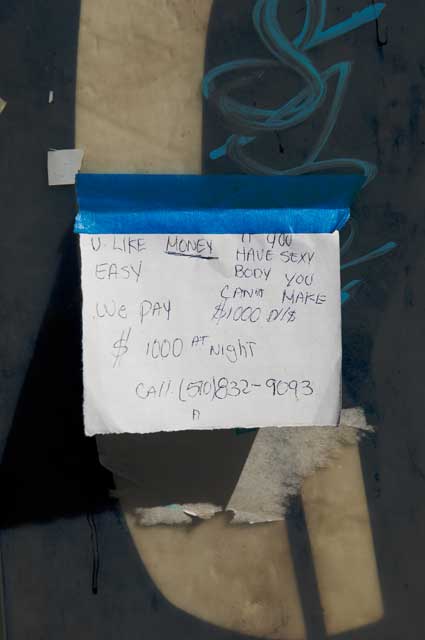 U. LIKE MONEY
EASY
IF YOU
HAVE SEXY
BODY YOU
CAN'T MAKE
$1000
WE PAY
$ 1000 AT NIGHT
CALL (510)832-9093